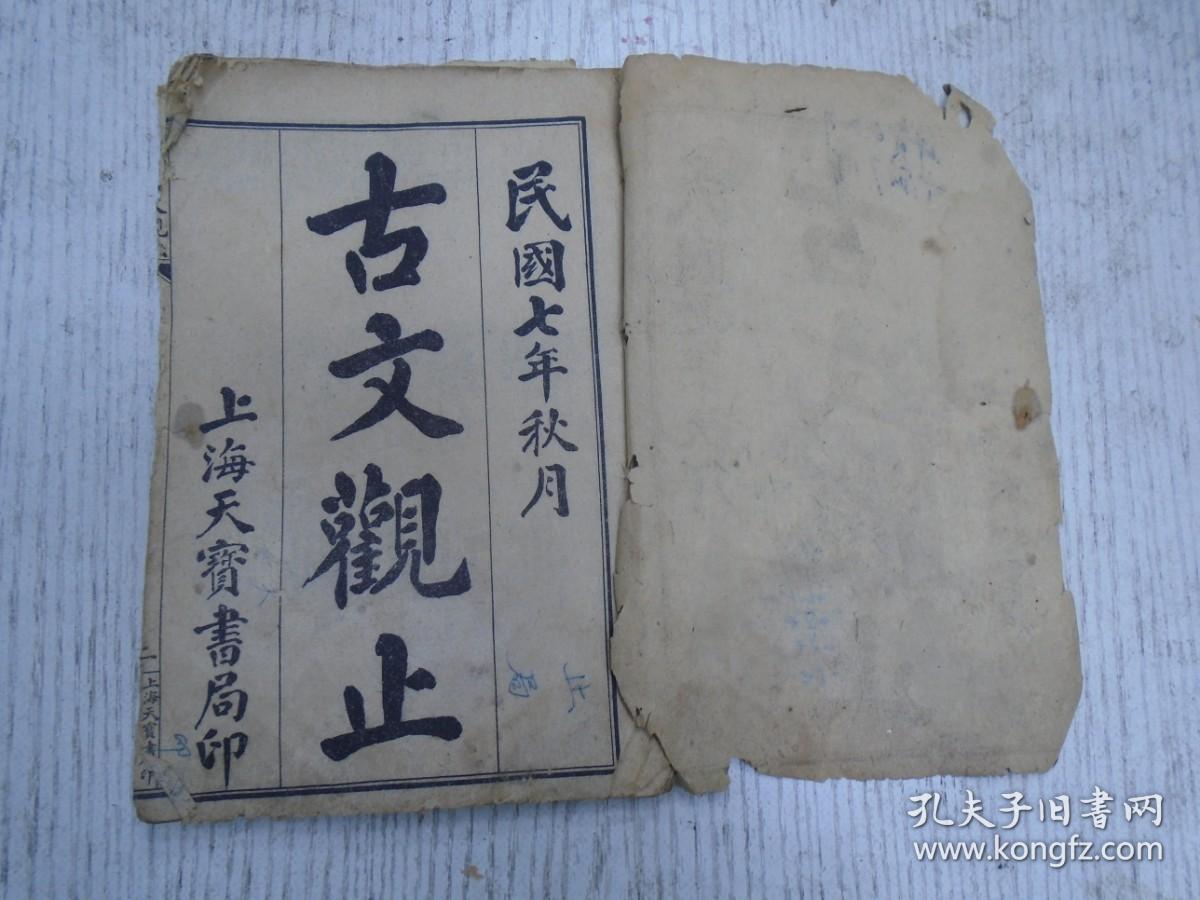 民國七年秋月
古文觀止
上海天寶書局印
上海天寶書
印
孔夫子旧书网
www.kongfz.com